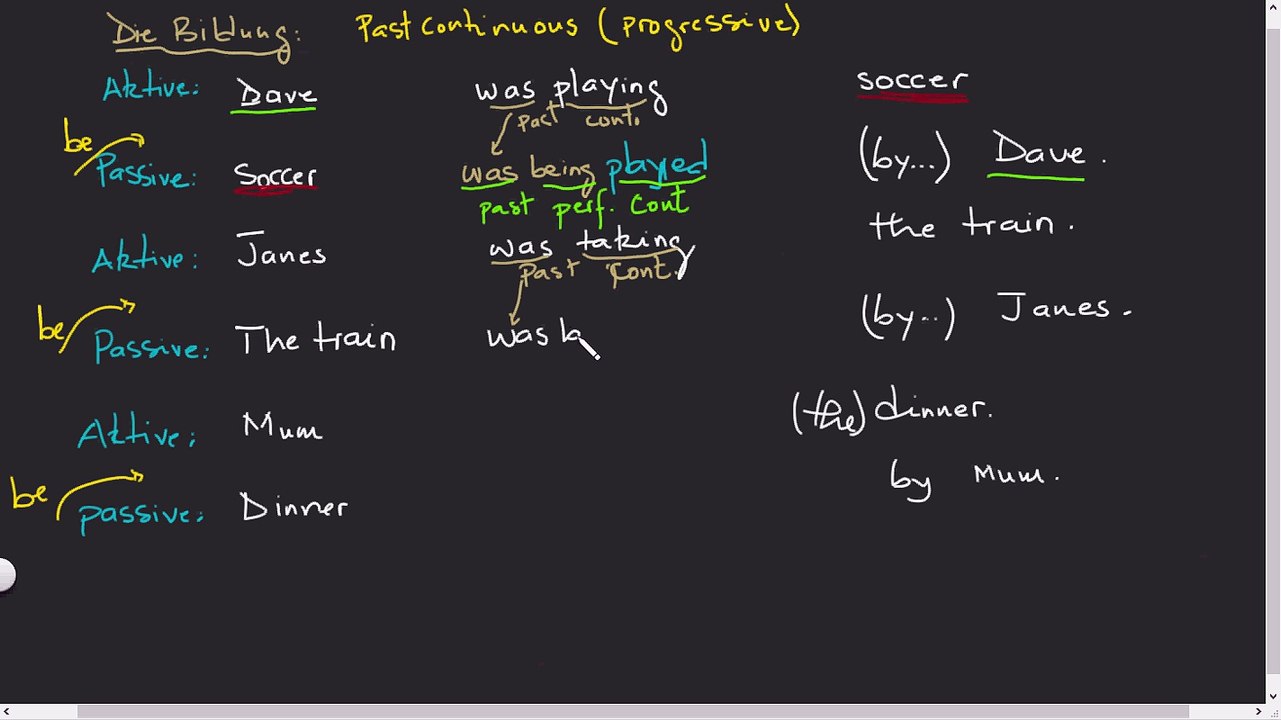 Die Bildung: Past Continuous (progressive)
Aktive: Dave was playing soccer
Past cont.
be
Passive: Soccer was being played (by...) Dave.
past perf. Cont
Aktive: Janes was taking the train.
Past Cont.
be
Passive: The train was b (by..) Janes.
Aktive: Mum (the) dinner.
be
passive: Dinner by Mum.